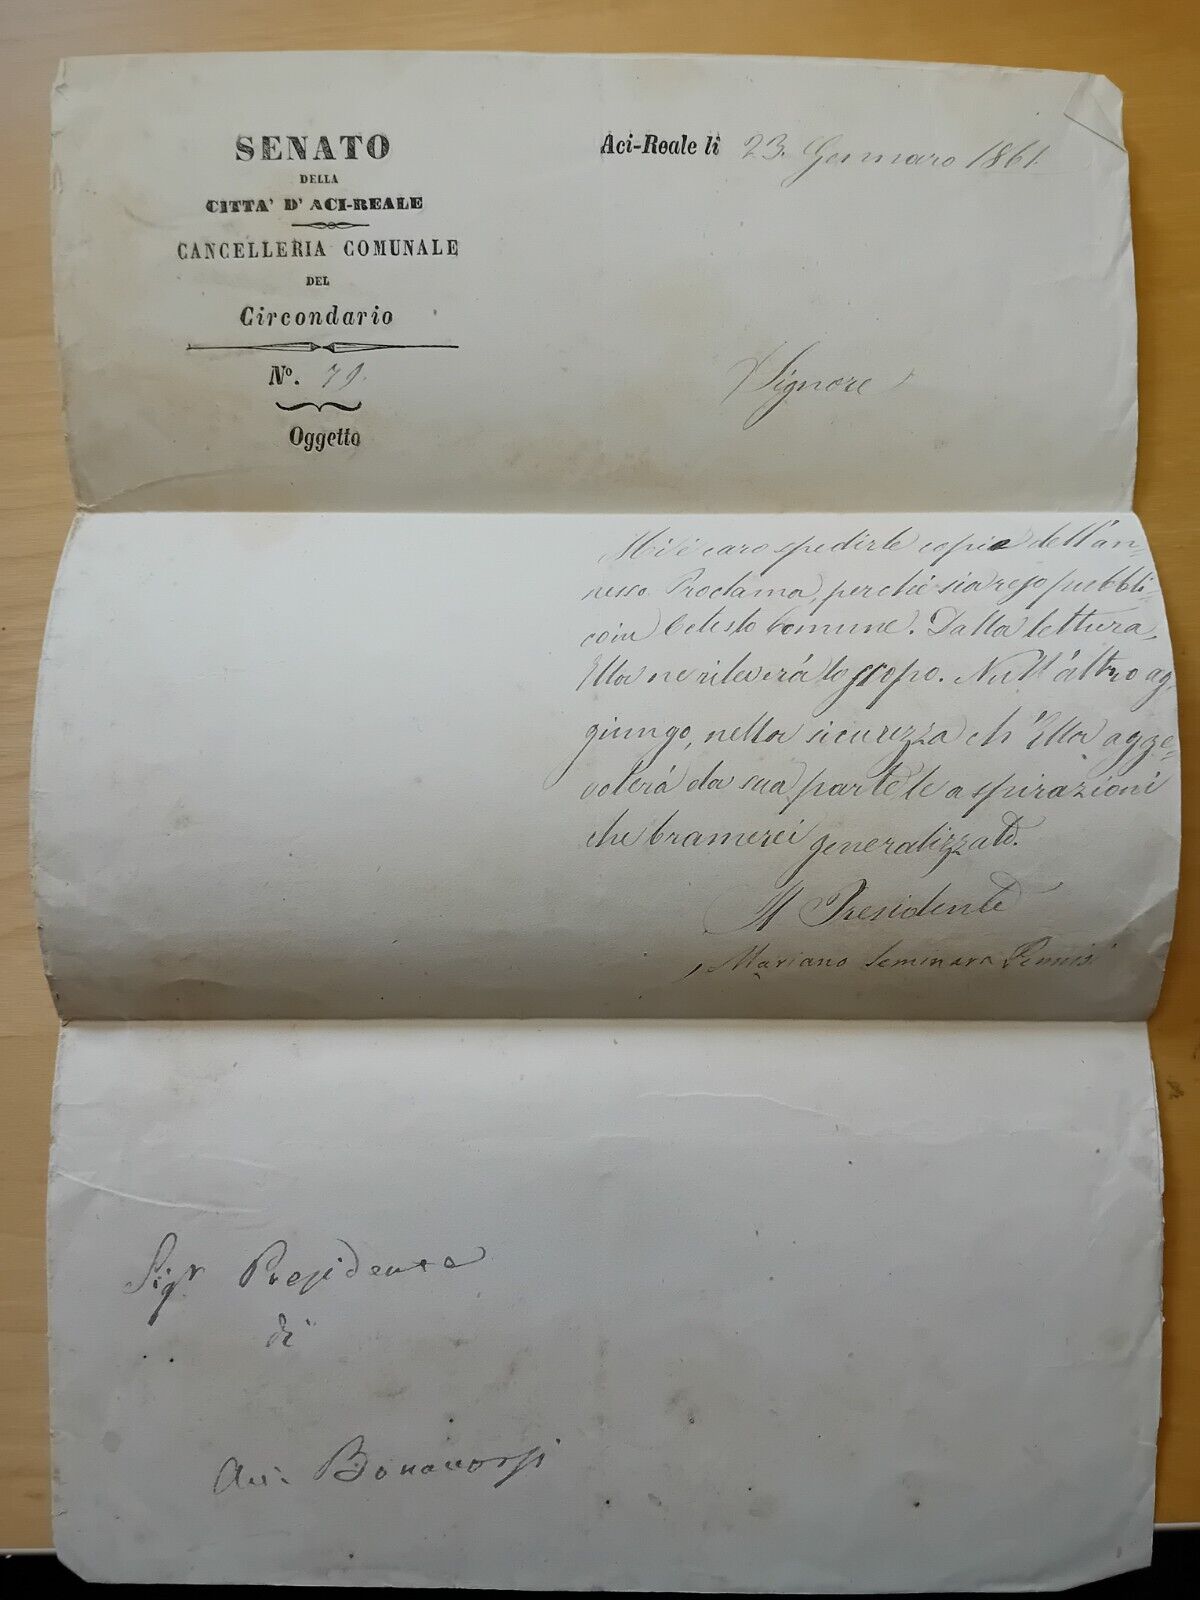 SENATO
DELLA
CITTA' D' ACI-REALE
CANCELLERIA COMUNALE
DEL
Circondario
N.o 79.
Oggetto
Aci-Reale lì 23. Gennaro 1861.
Signore
Mi è caro spedirle copia dell'an-
nesso Proclama, perchè sia reso pubbli-
co in Cotesto Comune. Dalla lettura,
Ella ne rileverà lo scopo. Null'altro ag-
giungo, nella sicurezza ch'Ella agge-
volerà da sua parte le aspirazioni
che bramerei generalizzate.
Il Presidente
Mariano Seminara Pennisi
Sigr Presidente
di
Aci Bonaccorsi